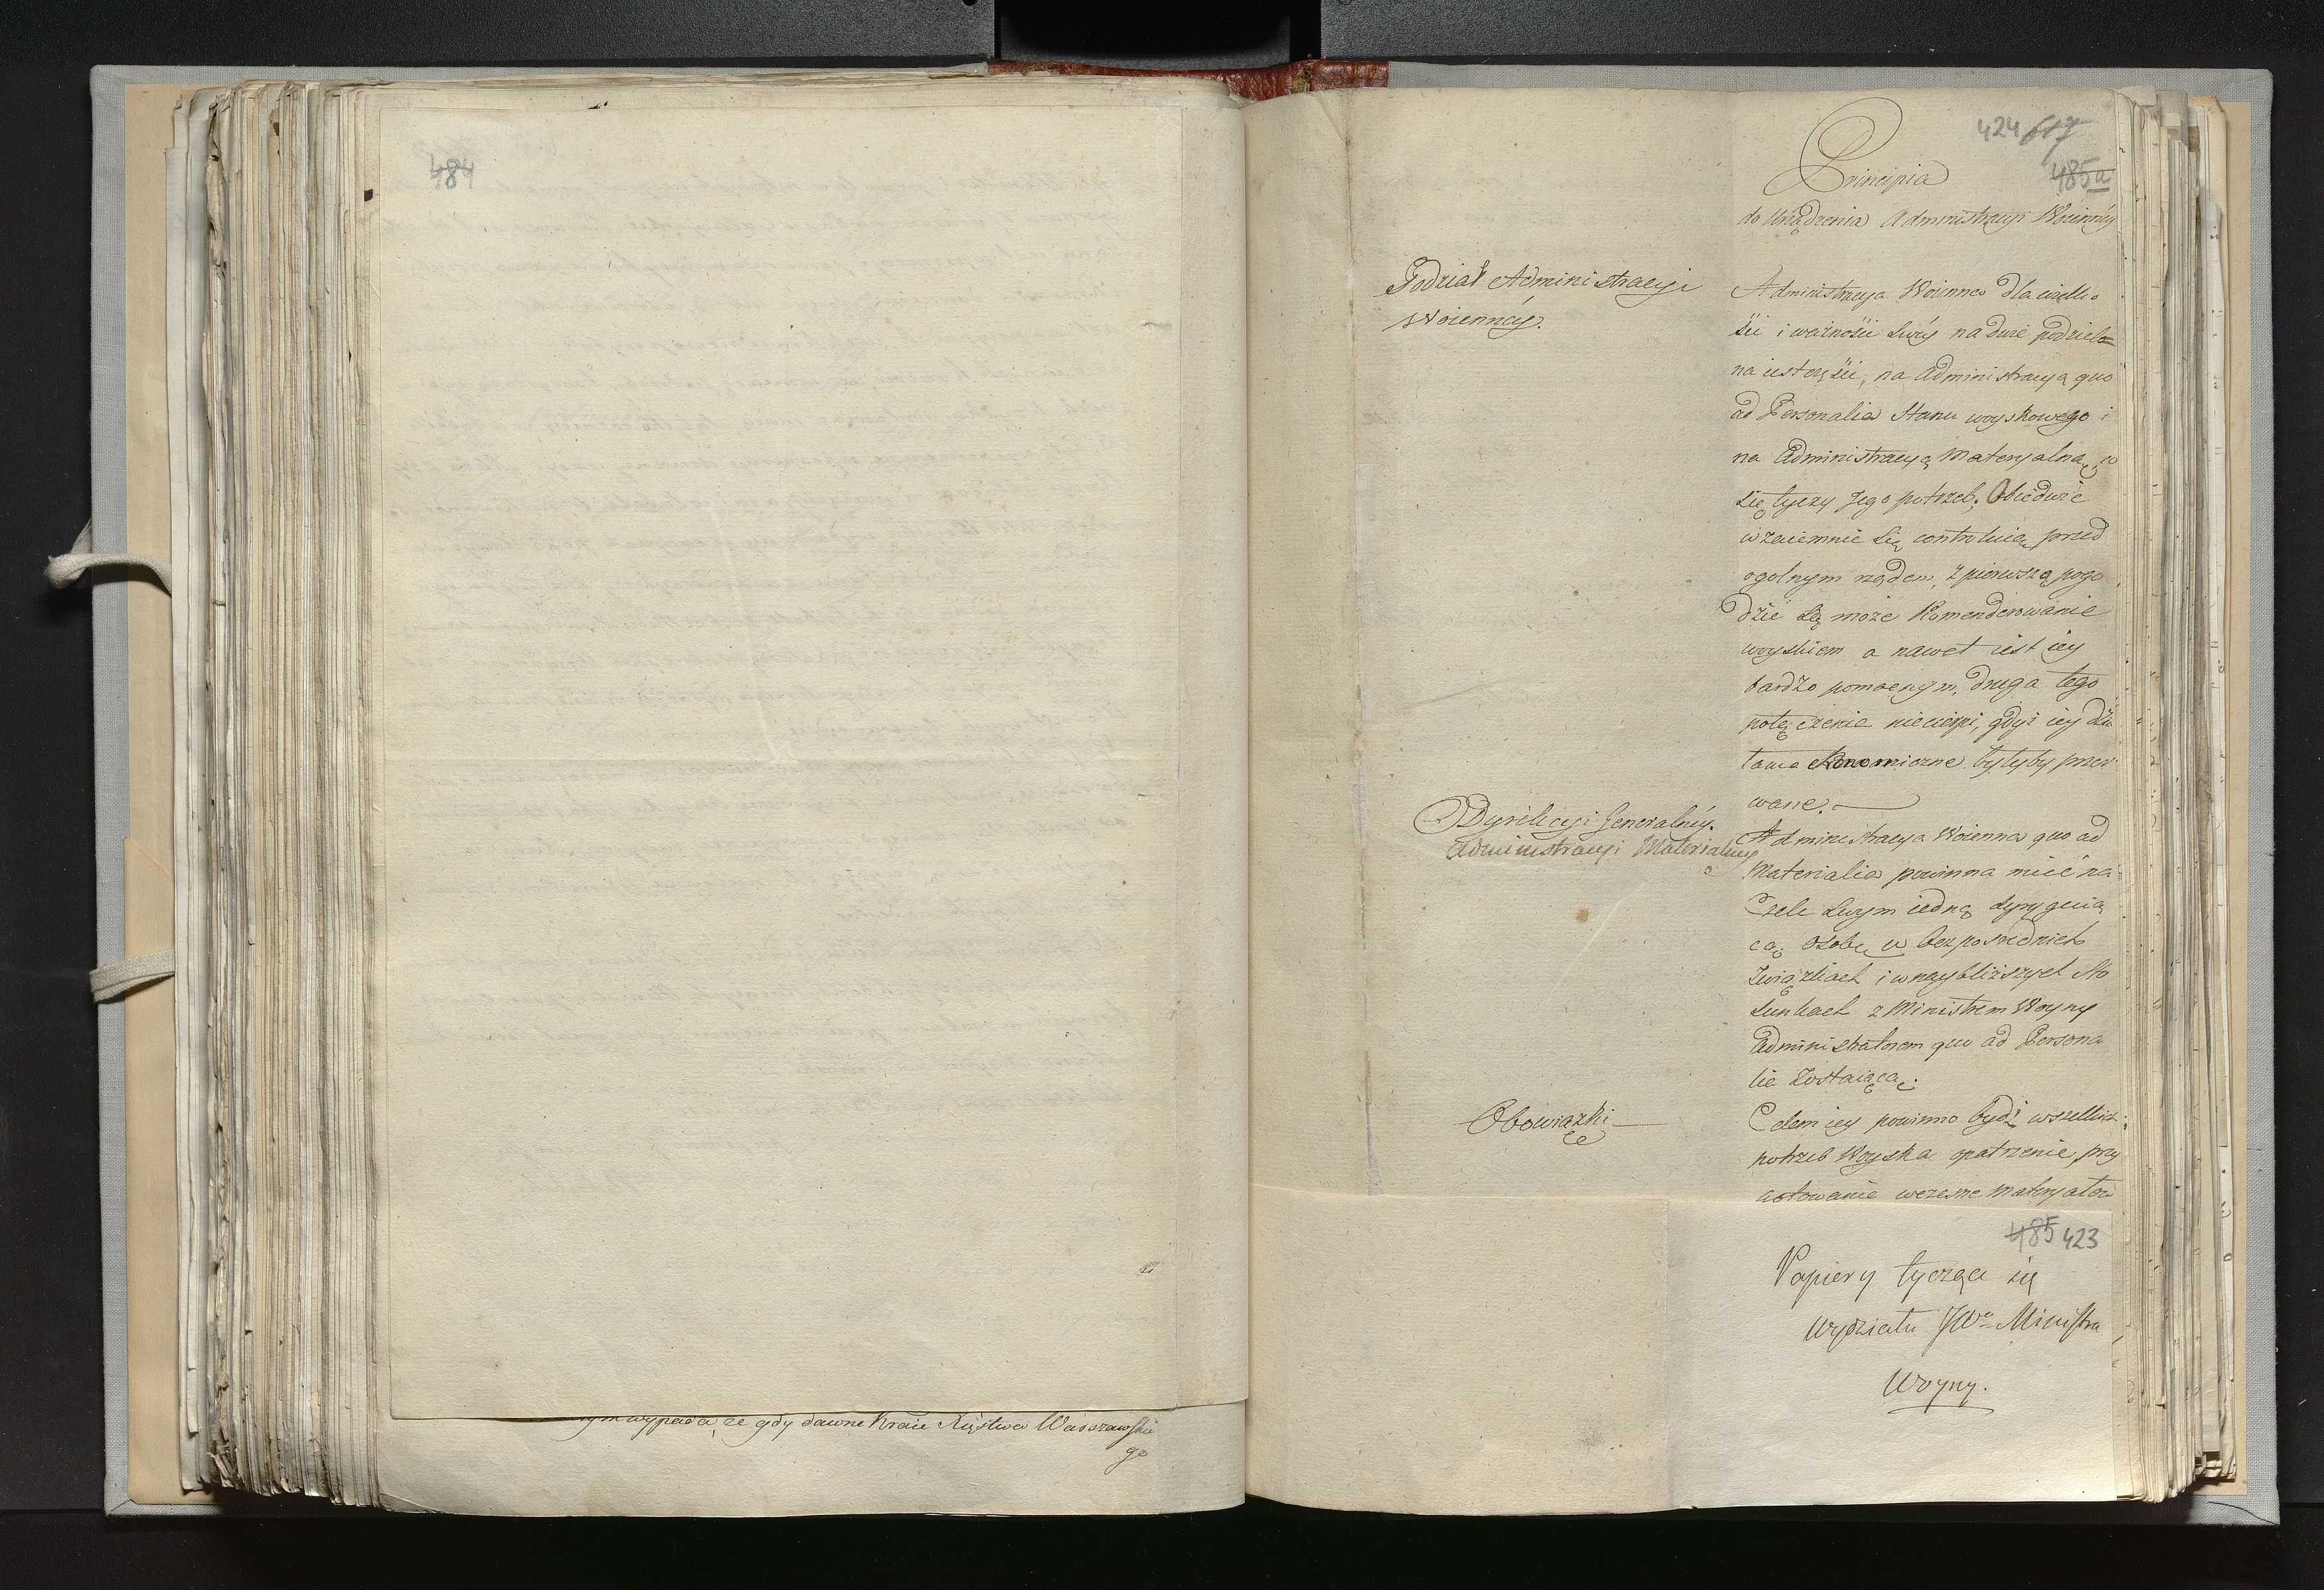 484
ym wypada, ze gdy dawne Kraie Xięstwa Warszawskie
go
424 617
485a
Principia
do Urządzenia Administracyi Woienney
Podział Administracyi
Woienney.
Administracya Woienna dla wielko
ści i ważności swéy na dwie podzielo=
na iest części, na Administracyą quo
ad Personalia Stanu woyskowego i
na Administracyą Materyalną, co
się tyczy Jego potrzeb. Obiedwie
wzaiemnie się controluią przed
ogolnym rządem, z pierwszą pogo
dzić się może Komenderowanie
woyskiem a nawet iest iey
bardzo pomocnym, druga tego
połączenia niecierpi, gdyż iey
ekonomiczne byłyby przer
wane.
Dyrekcyi Generalnéy.
Administracyi Materialney
Administracya Woienna quo ad
Materialia powinna mieć na
Czele swym iedną dyryguią
cą osobę w bezposrednich
Związkach i w naybliższych Sto
sunkach z Ministrem Woyny
Administratorem quo ad Persona
lia Zostaiącą.
Obowiązki
Celem iey powinno bydź wszelkich
potrzeb Woyska opatrzenie, przy
gotowanie wczesne materyałow
485 423
Papiery tyczące się
Wydziału JWo Ministra
Woyny.